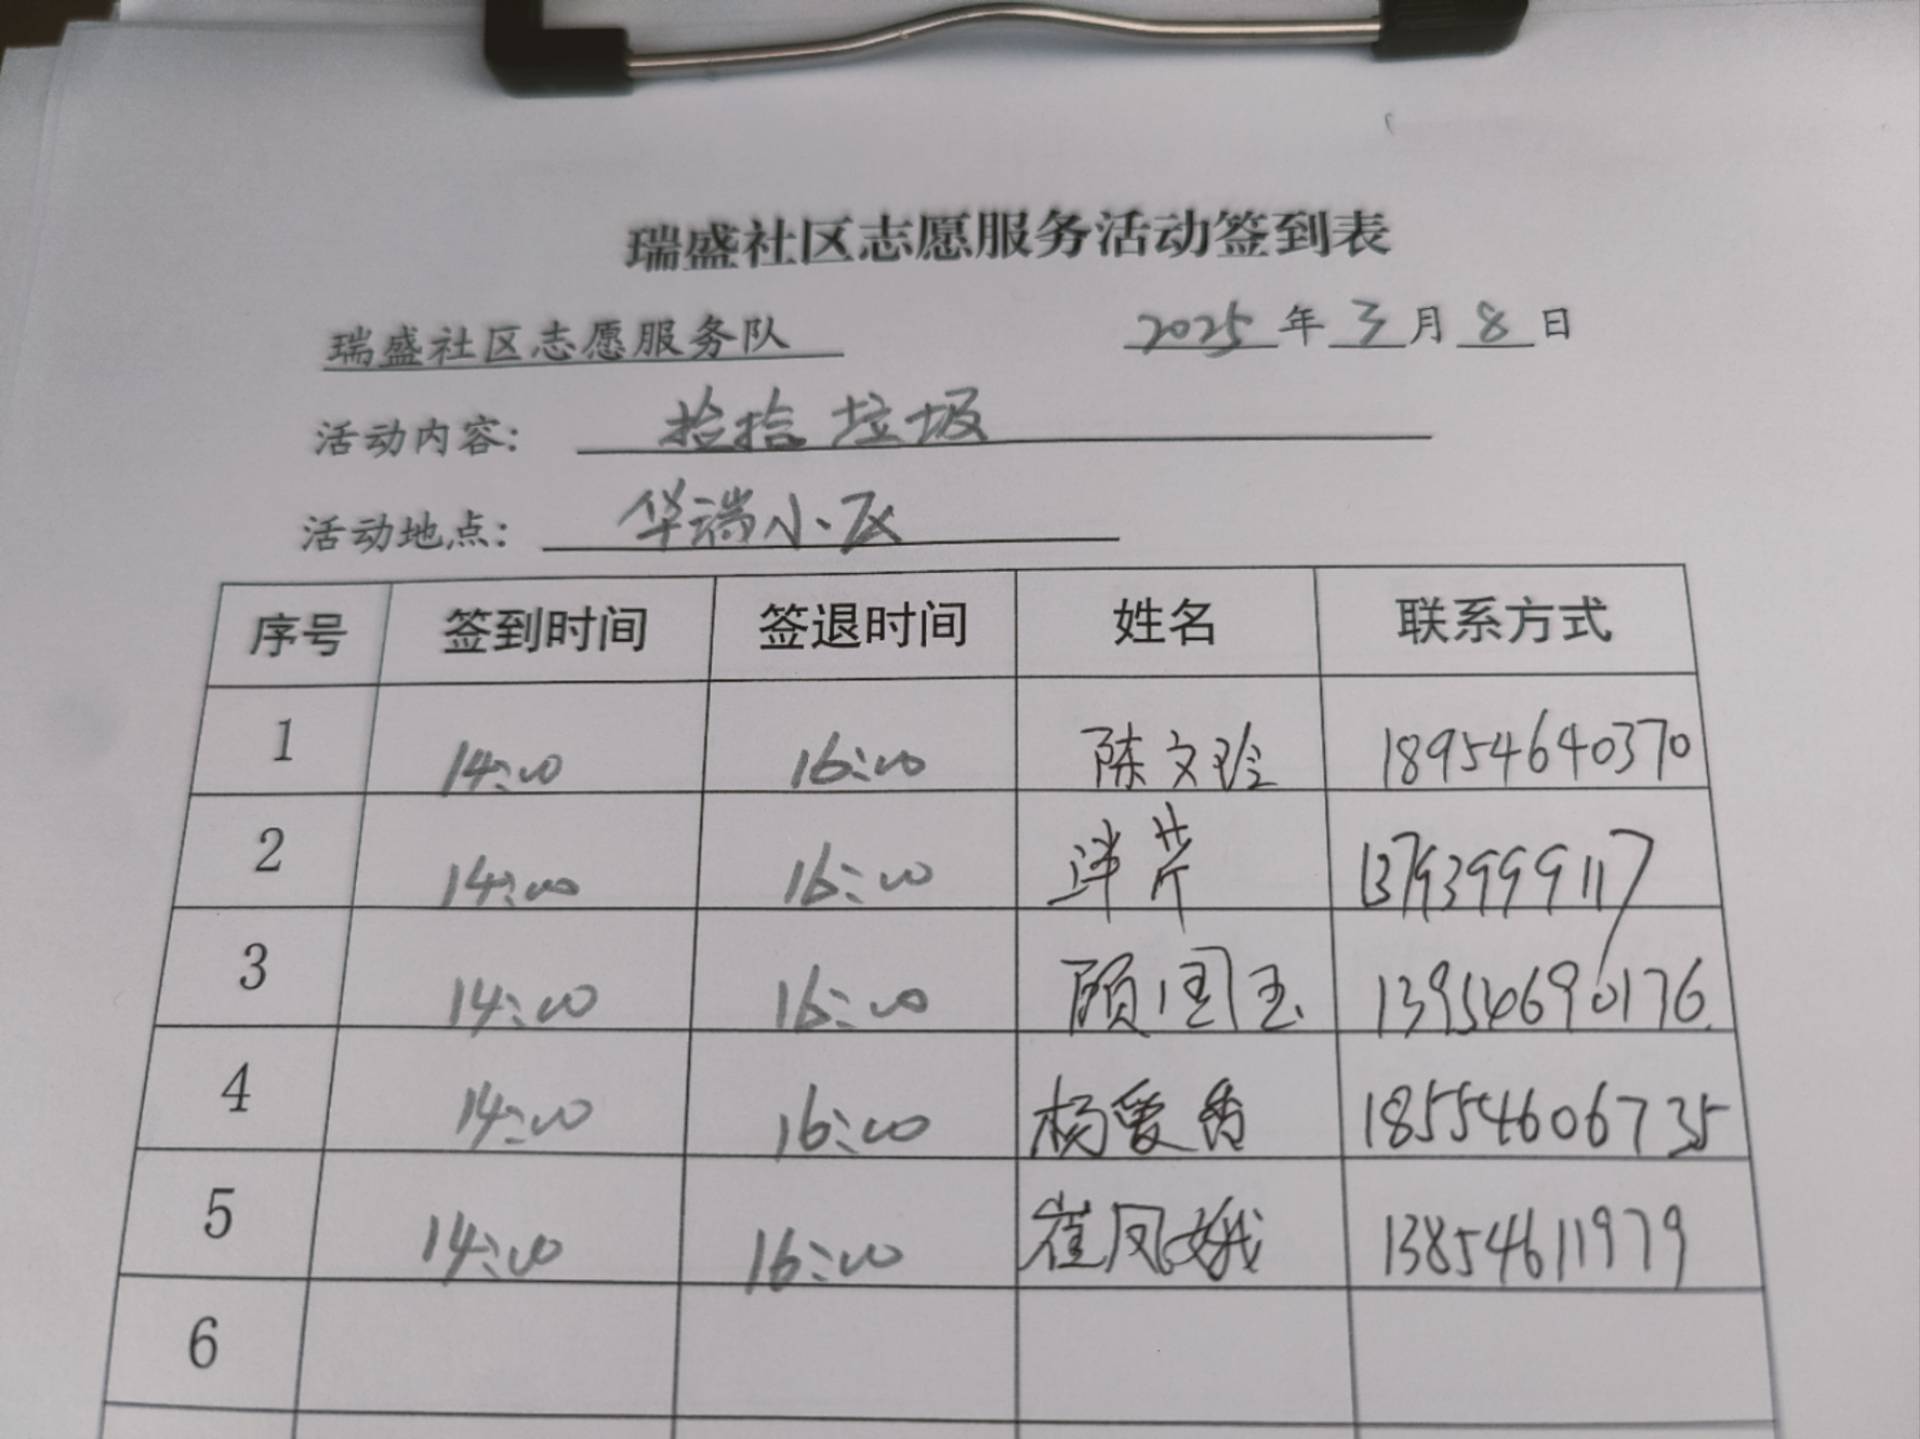 瑞盛社区志愿服务活动签到表
瑞盛社区志愿服务队 2025年3月8日
活动内容: 捡拾垃圾
活动地点: 华瑞小区
序号 签到时间 签退时间 姓名 联系方式
1 14:00 16:00 陈文玲 18954640370
2 14:00 16:00 芹 13793999117
3 14:00 16:00 顾国玉 13954690176
4 14:00 16:00 杨爱香 18554606735
5 14:00 16:00 崔凤娥 13854611979
6